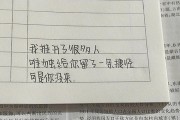 我推开了很多人
唯独给你留了一条捷径
可是你没来.